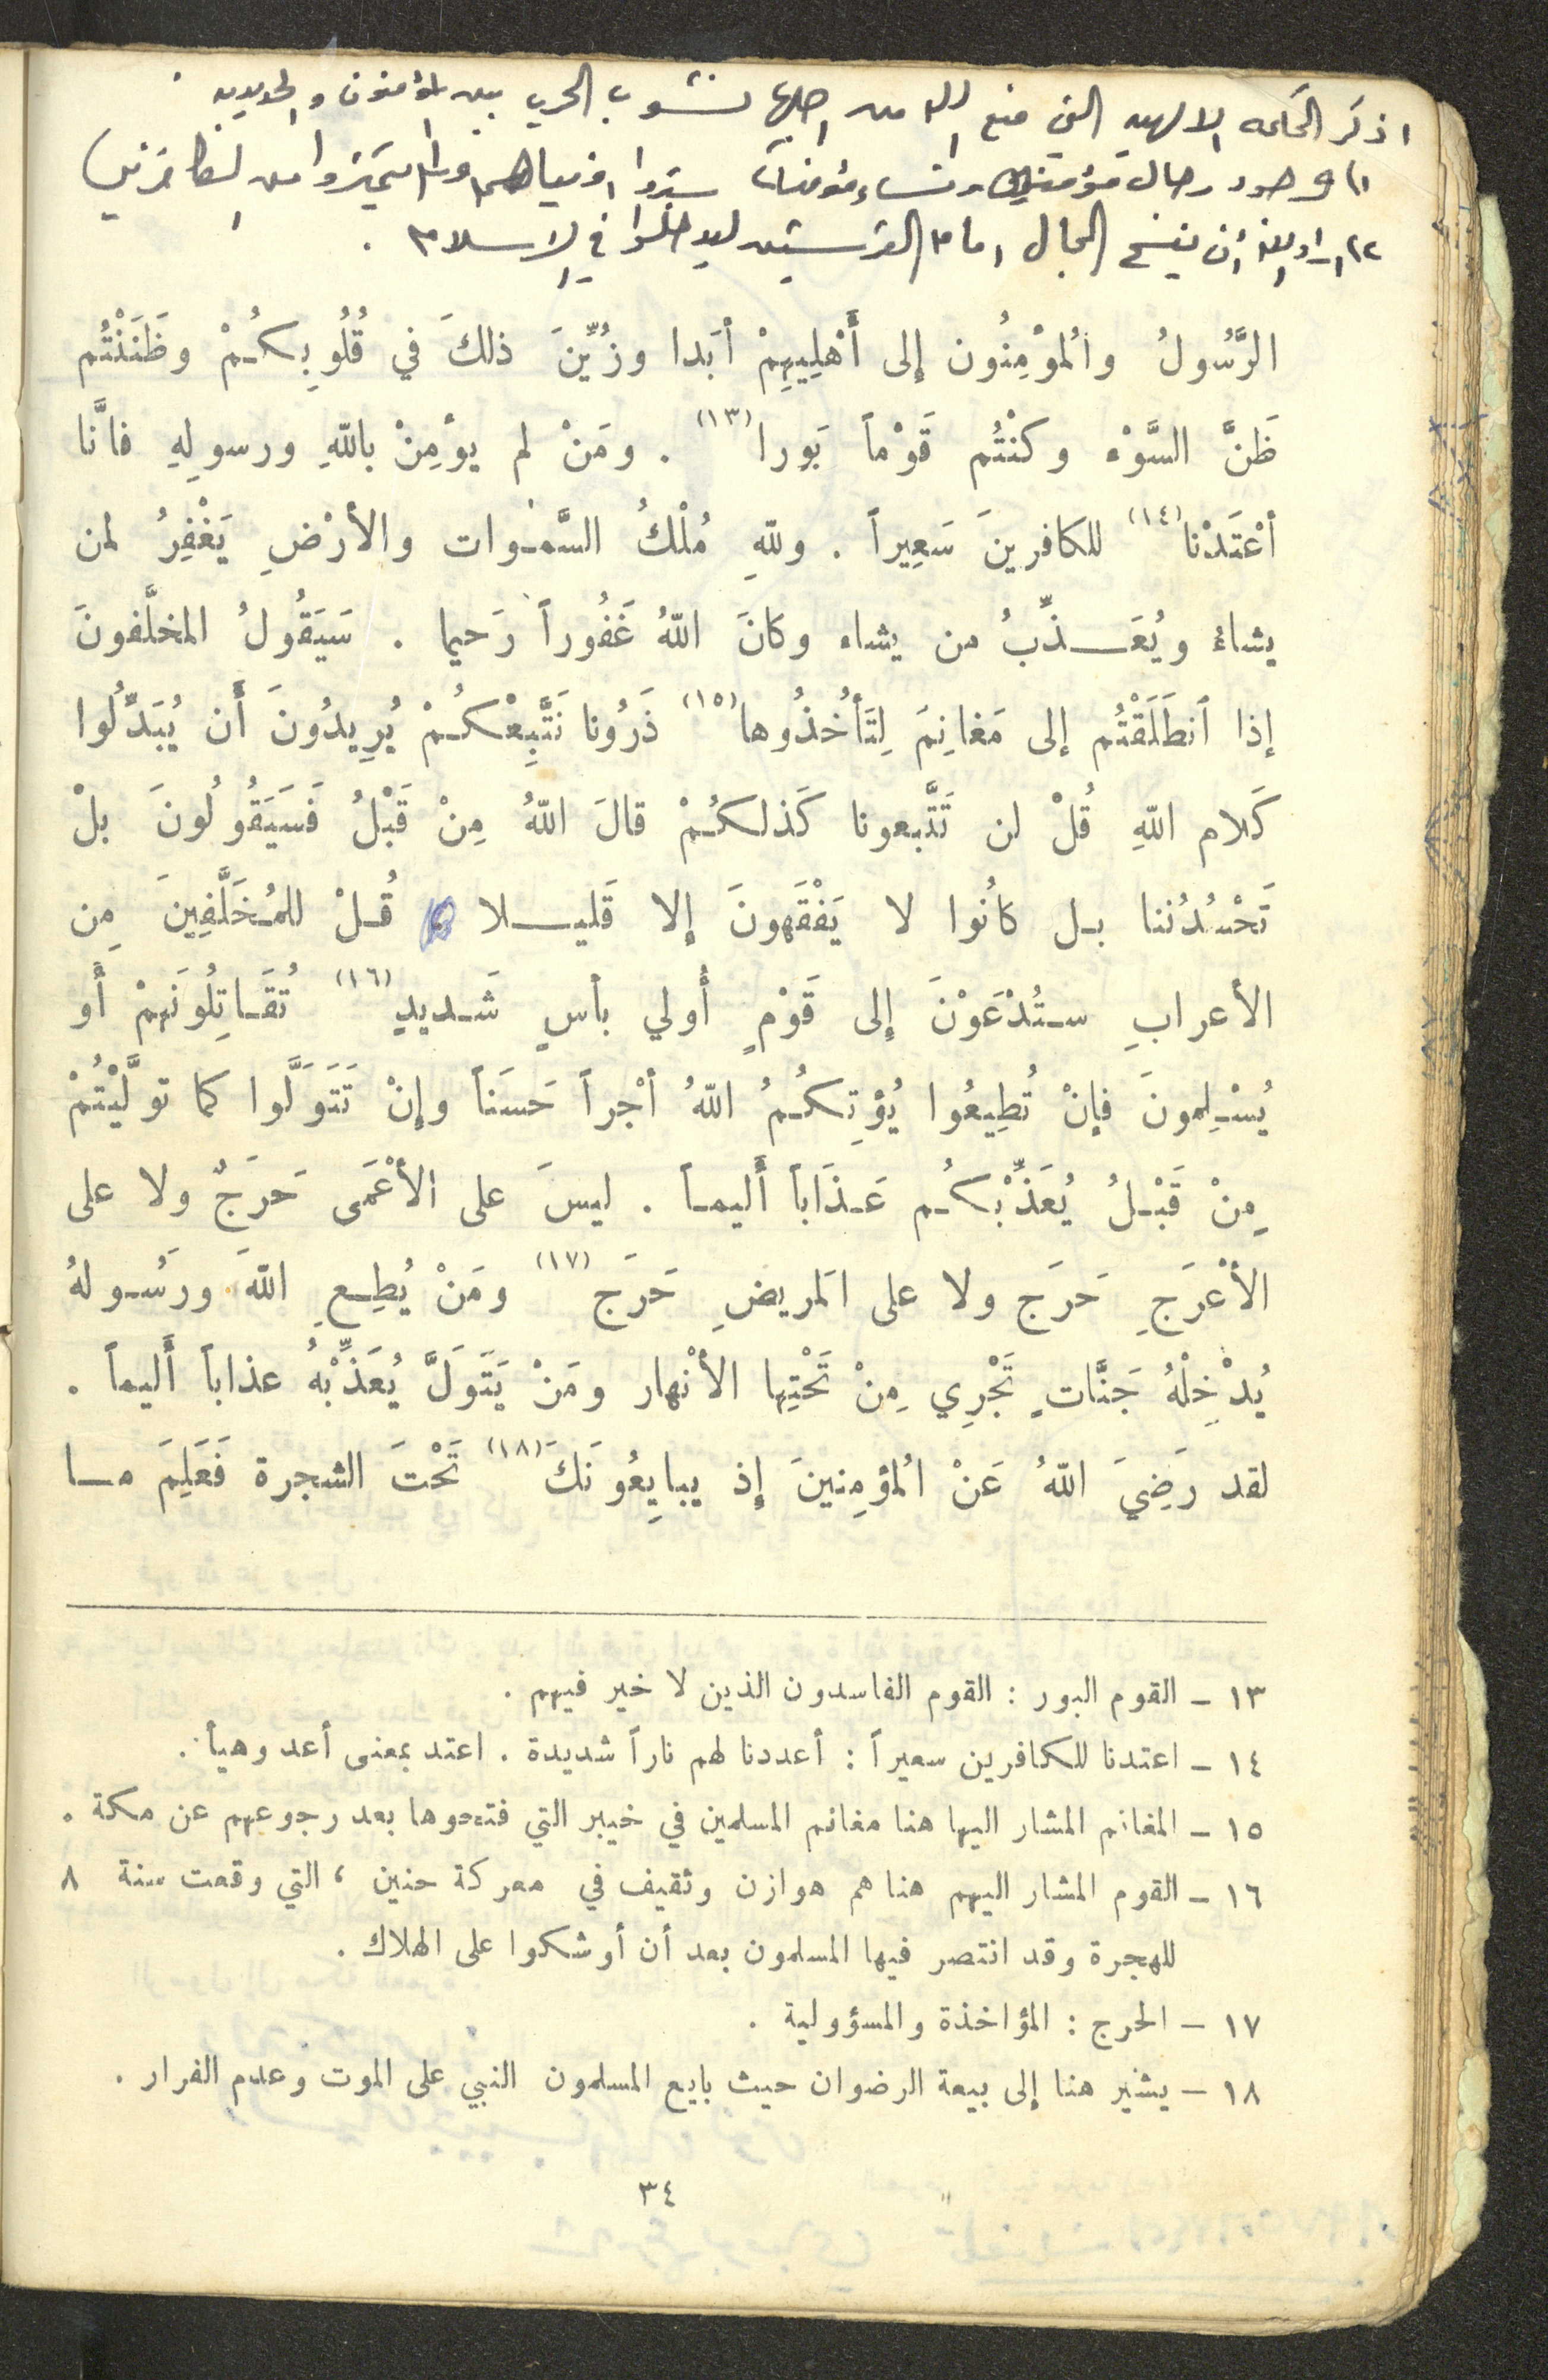 اذكر الحكمه الالهيه التي منع الله من اجلها نشوب الحرب بين المؤمنون و الحديبيه .
١) وجود رجال مؤمنين ونساء مؤمنات ستروا ايمانهم ولم يتميزوا من الكافرين
٢) اراد الله أن يفسح المجال امام القرشيين ليدخلوا في الاسلام .
الرَّسُولُ وألمُوْمِنُون إلى أَهْلِيهِمْ أبَدا وزُيِّنَ ذلكَ في قُلُوبِكُمْ وظَنَنْتُم
ظَنَّ السَّوْء وكنْتُم قَوْماً بَورا (١٣) . ومَنْ لم يوْمِنْ باللهِ ورسولِهِ فانَّا
أعْتَدْنا (١٤) للكافرينَ سَعِيراً . وللهِ مُلْكُ السَّمٰوات والأرْضِ يَغْفِرُ لمن
يشاءُ ويُعَذِّبُ من يشاء وكانَ اللهُ غَفُوراً رَحيما . سَيَقُولُ المخلَّفونَ
إذا أنطَلَقْتُم إلى مَغانِمَ لِتَأخُذُوها (١٥) ذَرُونا نَتَّبِعْكُمْ يُرِيدُونَ أَن يُبَدِّلُوا
كَلام اللهِ قُلْ لن تَتَّبعونا كَذلكُمْ قالَ اللهُ مِنْ قَبْلُ فَسَيَقُولُونَ بلْ
تَحْسُدُننا بل كانُوا لا يَفْقَهونَ إلا قَليلا قُلْ للمُخَلَّفِينَ مِن
الأعرابِ ستُدْعَوْنَ إلى قَوْمٍ أُولي بأسٍ شَديدٍ (١٦) تُقَاتِلُونَهمْ أَو
يُسْلِمونَ فإنْ تُطِيعُوا يُوْتِكُمُ اللهُ أجْراً حَسَناً وإنْ تَتَوَلَّوا كما توَلَّيْتُمْ
مِنْ قَبْلُ يُعَذِّبْكُم عَذَاباً أَليماً . ليسَ على الأعْمَى حَرَجٌ ولا على
الأعْرَجِ حَرَج ولا على المَريضِ حَرَج (١٧) ومَنْ يُطِعِ اللهَ ورَسُولهُ
يُدْخِلْهُ جَنَّاتٍ تَجْرِي مِنْ تَحْتِها الأنْهار ومَنْ يَتَوَلَّ يُعَذِّبْهُ عذاباً أَليماً .
لقد رَضِيَ اللهُ عَنْ المُؤمِنينَ إذ يبايِعُونَكَ (١٨) تَحْتَ الشجرة فَعَلِمَ ما
١٣ – القوم البور : القوم الفاسدون الذين لا خير فيهم .
١٤ – اعتدنا للكافرين سعيراً : أعددنا لهم ناراً شديدة . اعتد بمعنى أعد وهيأ .
١٥ – المغانم المشار اليها هنا مغانم المسلمين في خيبر التي فتحوها بعد رجوعهم عن مكة .
١٦ – القوم المشار اليهم هنا هم هوازن وثقيف في معركة حنين ، التي وقعت سنة ٨
للهجرة وقد انتصر فيها المسلمون بعد أن أوشكوا على الهلاك .
١٧ – الحرج : المؤاخذة والمسؤولية .
١٨ – يشير هنا إلى بيعة الرضوان حيث بايع المسلمون النبي على الموت وعدم الفرار .
٣٤